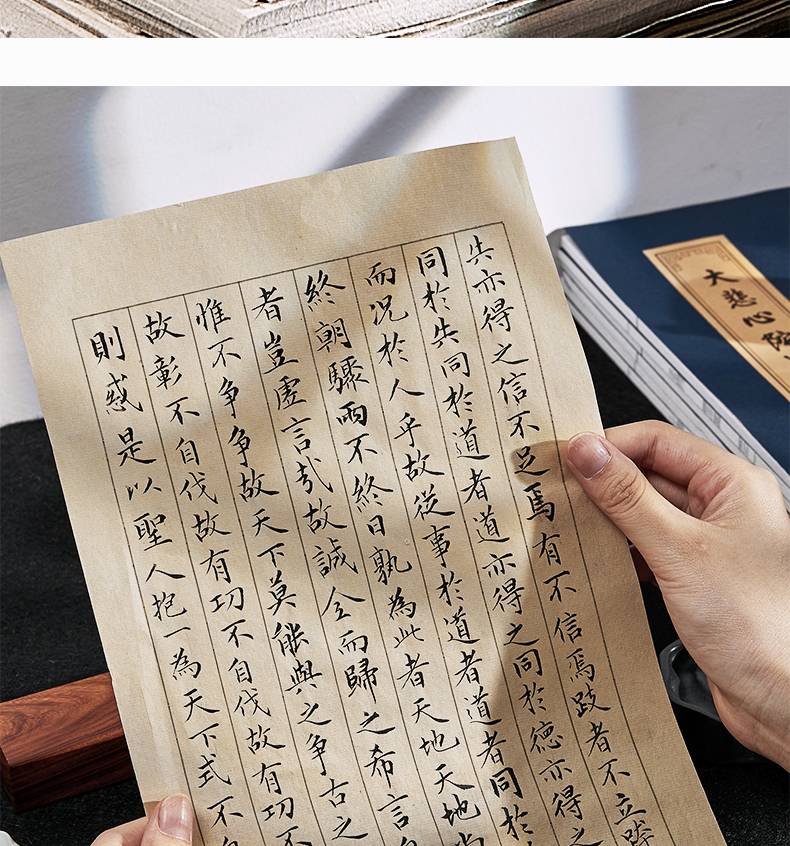 則惑是以聖人抱一為天下式不
故彰不自伐故有功不自伐故有功不
惟不争争故天下莫能與之争古之
者豈虛言哉故誠全而歸之希言
終朝驟雨不終日孰為此者天地天地
而況於人乎故從事於道者道者同於
同於失同於道者道亦得之同於德亦得之
失亦得之信不足焉有不信焉跂者不立跨
大悲心陀